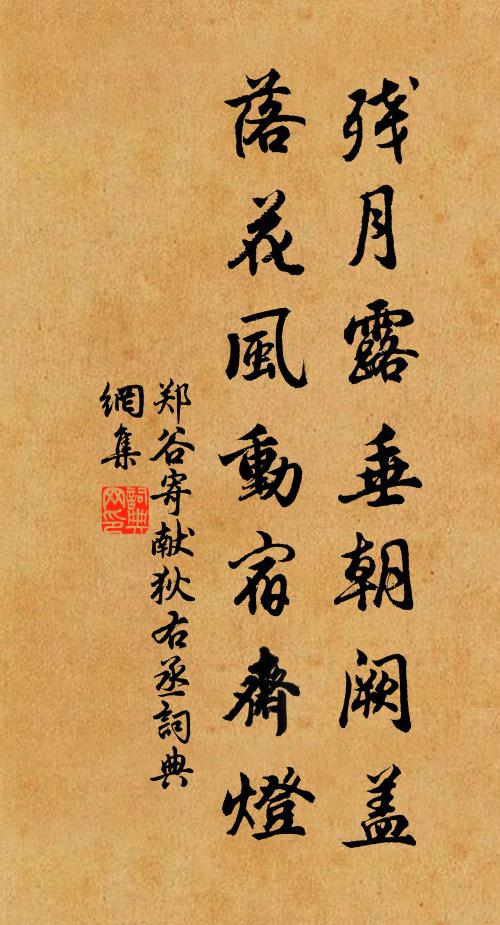 残月露垂朝阙盖
落花風動宿齋燈
郑谷寄献狄右丞詞典
網集
詞典網印